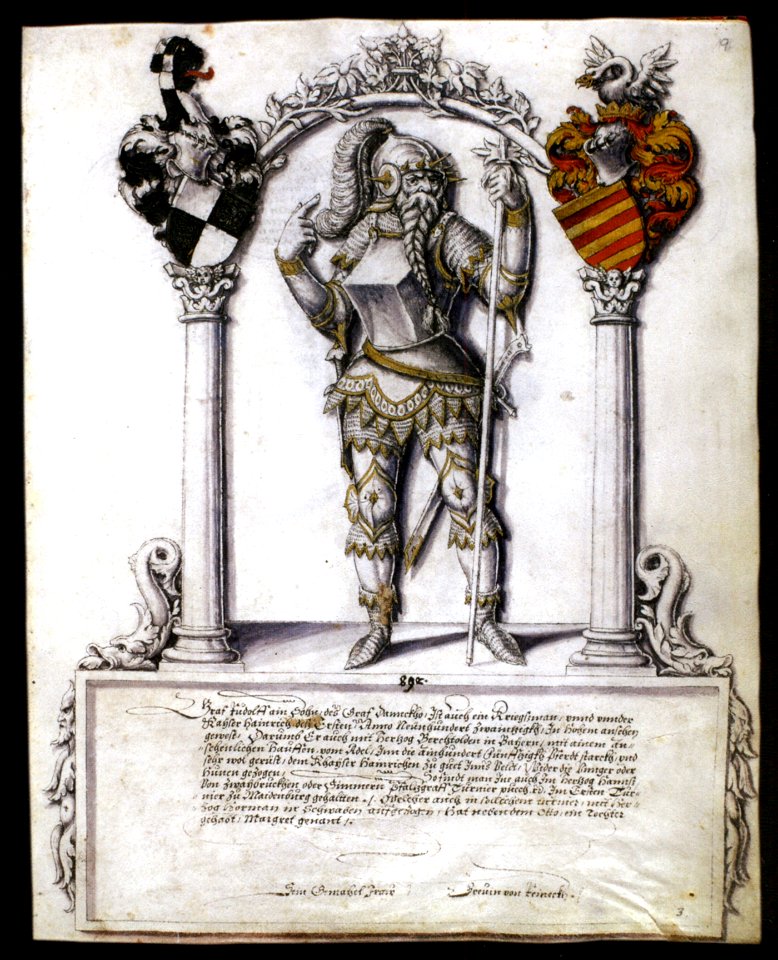 9
892
Graf Rudolff ain Sohn, des Graf Dannckho, Ist auch ein Kriegsman, vnnd vnnder
Kayser Hainrich des Ersten, Anno Neunhundert zwaintzigkh, In hohem ansehen
gewest, Darumb Er auch mit Herzog Berchtolden in Bayern, mit ainem an-
sehenlichen Hauffen, vom Adel, Inn die ainhundert fünffzigkh Pferdt starckh, vnd
sehr wol gerüst, dem Khayser Hainrichen zu guet Inns Veldt, Wider die Unnger oder
Hunen gezogen, Befindt man In auch Im Herzog Hannß
von Zwayprückhen oder Simmern Pfaltzgraff Turnier puech Im Ersten Tur-
nier zu Maidenburg gehalten. Welcher auch in solichem turnier, mit Her-
zog Herman in Schwaben aufgezogen, Hat neben dem Otto, ein Tochter
gehabt, Margret genant.
Sein Gemahel Fraw von Reineckh.
3